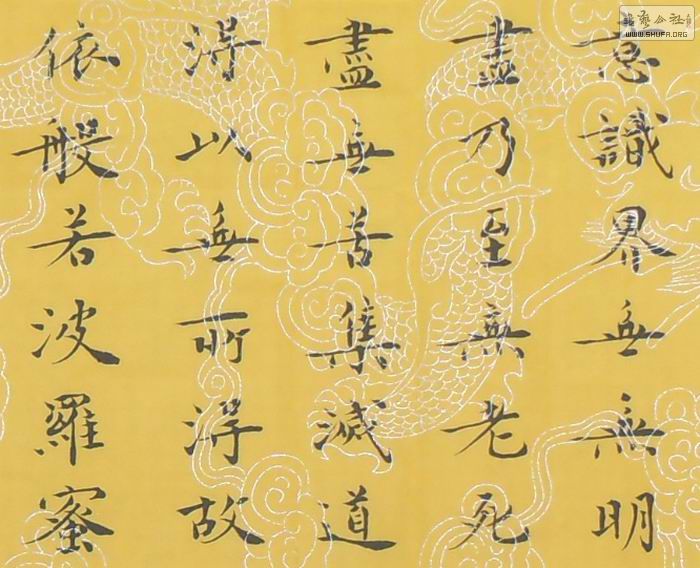 意識界無無明
盡乃至無老死
盡無苦集滅道
得以無所得故
依般若波羅蜜
藝公社
WWW.SHUFA.ORG